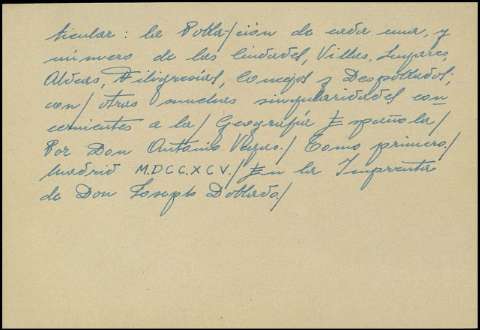 ticular: la Pobla/ción de cada una, y
número de las Ciudades, Villas, Lugares,
Aldeas, Filigresías, Concejos y Despoblados;
con/ otras muchas singularidades con
cernientes a la/ Geografía Española/
Por Don Antonio Vegas./ Tomo primero/
Madrid M.DCC.XCV./ En la Imprenta
de Don Joseph Doblado/